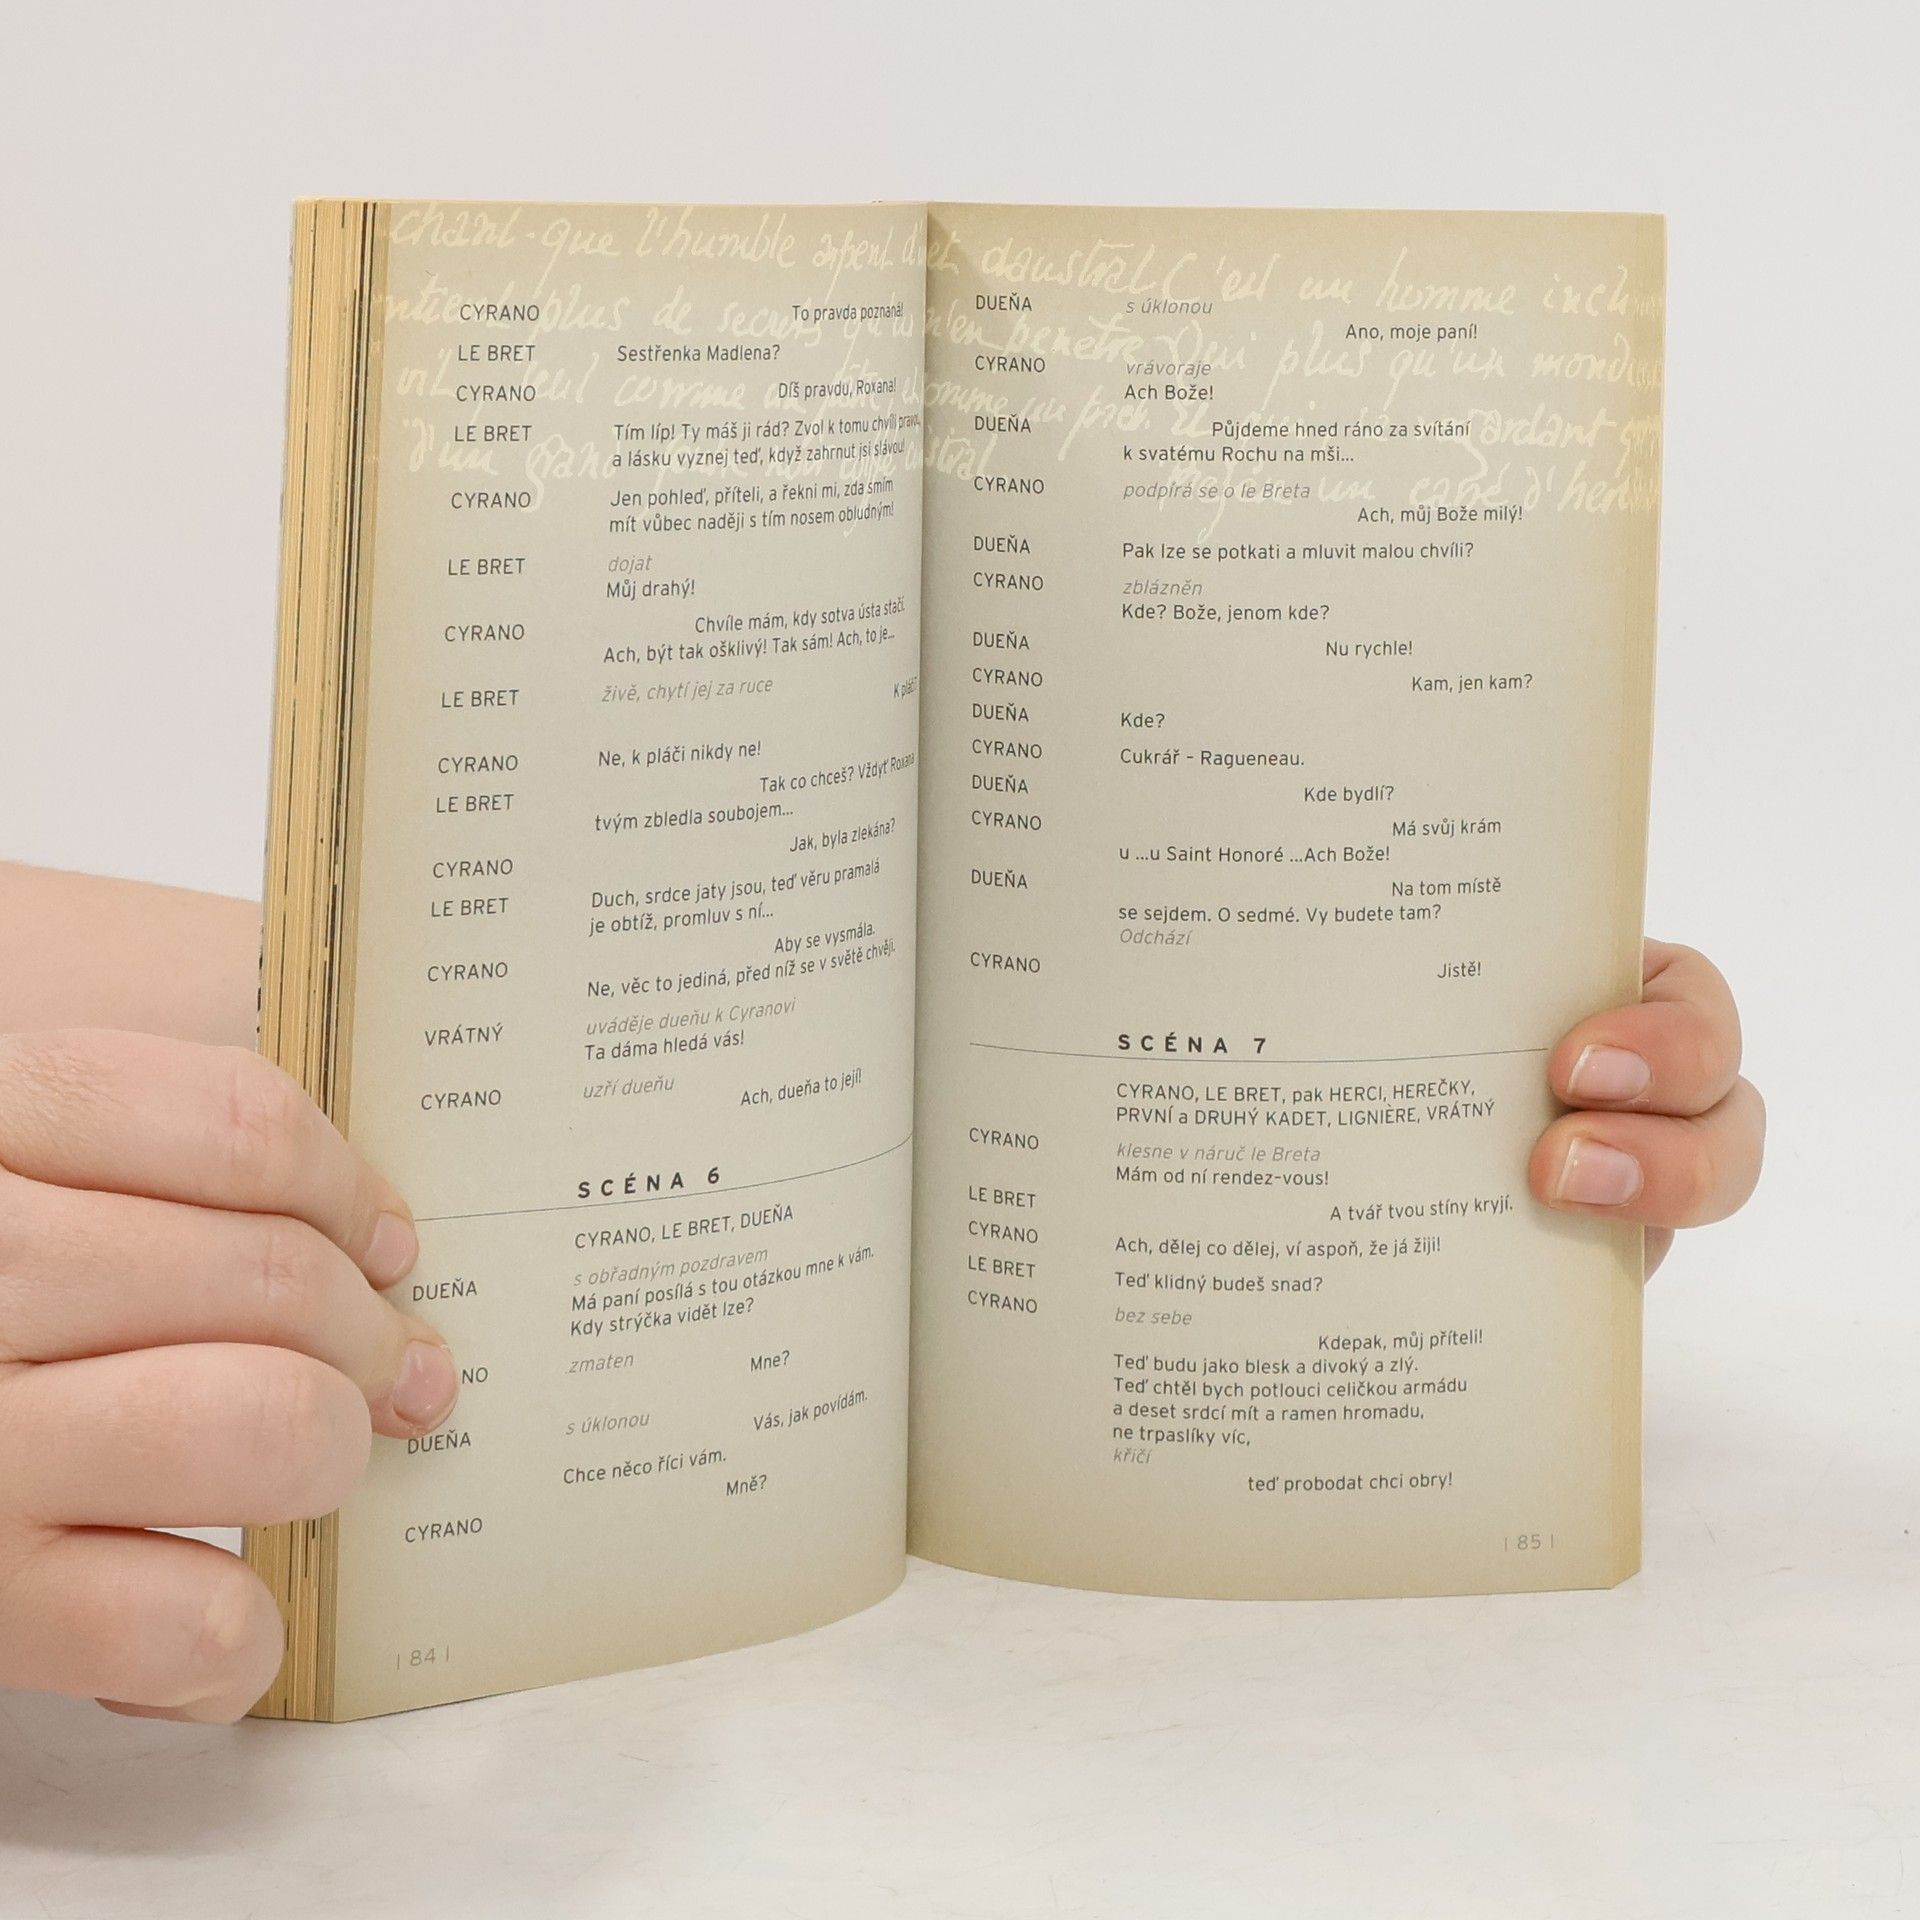 chant que l'humble
plus de secrets
comme un
d'un grand
CYRANO To pravda poznaná!
LE BRET Sestřenka Madlena?
CYRANO Díš pravdu, Roxana!
LE BRET Tím líp! Ty máš ji rád? Zvol k tomu chvíli pravou,
a lásku vyznej teď, když zahrnut jsi slávou!
CYRANO Jen pohleď, příteli, a řekni mi, zda smím
mít vůbec naději s tím nosem obludným!
LE BRET dojat
Můj drahý!
CYRANO Chvíle mám, kdy sotva ústa stačí.
Ach, být tak ošklivý! Tak sám! Ach, to je...
LE BRET živě, chytí jej za ruce
K pláči?
CYRANO Ne, k pláči nikdy ne!
LE BRET Tak co chceš? Vždyť Roxana
tvým zbledla soubojem...
CYRANO Jak, byla zlekána?
LE BRET Duch, srdce jaty jsou, teď věru pramalá
je obtíž, promluv s ní...
CYRANO Aby se vysmála.
Ne, věc to jediná, před níž se v světě chvěji.
VRÁTNÝ uváděje dueňu k Cyranovi
Ta dáma hledá vás!
CYRANO uzří dueňu
Ach, dueňa to její!
SCÉNA 6
CYRANO, LE BRET, DUEŇA
DUEŇA s obřadným pozdravem
Má paní posílá s tou otázkou mne k vám.
Kdy strýčka vidět lze?
NO zmaten
Mne?
DUEŇA s úklonou
Vás, jak povídám.
Chce něco říci vám.
CYRANO Mně?
| 84 |
daustral C'est un homme
penetre plus qu'un
un carré d'
DUEŇA s úklonou
Ano, moje paní!
CYRANO vrávoraje
Ach Bože!
DUEŇA Půjdeme hned ráno za svítání
k svatému Rochu na mši...
CYRANO podpírá se o le Breta
Ach, můj Bože milý!
DUEŇA Pak lze se potkati a mluvit malou chvíli?
CYRANO zblázněn
Kde? Bože, jenom kde?
DUEŇA Nu rychle!
CYRANO Kam, jen kam?
DUEŇA Kde?
CYRANO Cukrář - Ragueneau.
DUEŇA Kde bydlí?
CYRANO Má svůj krám
u ...u Saint Honoré ...Ach Bože!
DUEŇA Na tom místě
se sejdem. O sedmé. Vy budete tam?
Odchází
CYRANO Jistě!
SCÉNA 7
CYRANO, LE BRET, pak HERCI, HEREČKY,
PRVNÍ a DRUHÝ KADET, LIGNIÈRE, VRÁTNÝ
CYRANO klesne v náruč le Breta
Mám od ní rendez-vous!
LE BRET A tvář tvou stíny kryjí.
CYRANO Ach, dělej co dělej, ví aspoň, že já žiji!
LE BRET Teď klidný budeš snad?
CYRANO bez sebe
Kdepak, můj příteli!
Teď budu jako blesk a divoký a zlý.
Teď chtěl bych potlouci celičkou armádu
a deset srdcí mít a ramen hromadu,
ne trpaslíky víc,
křičí
teď probodat chci obry!
| 85 |